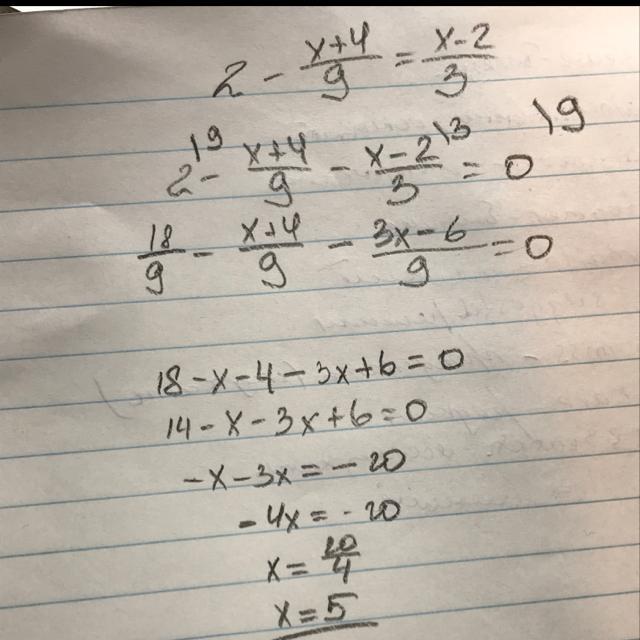 2 - \frac{x+4}{9} = \frac{x-2}{3}
2^{\backslash 9} - \frac{x+4}{9} - \frac{x-2}{3}^{\backslash 3} = 0 \quad \backslash 9
\frac{18}{9} - \frac{x+4}{9} - \frac{3x-6}{9} = 0
18 - x - 4 - 3x + 6 = 0
14 - x - 3x + 6 = 0
-x - 3x = -20
-4x = -20
x = \frac{20}{4}
x = 5